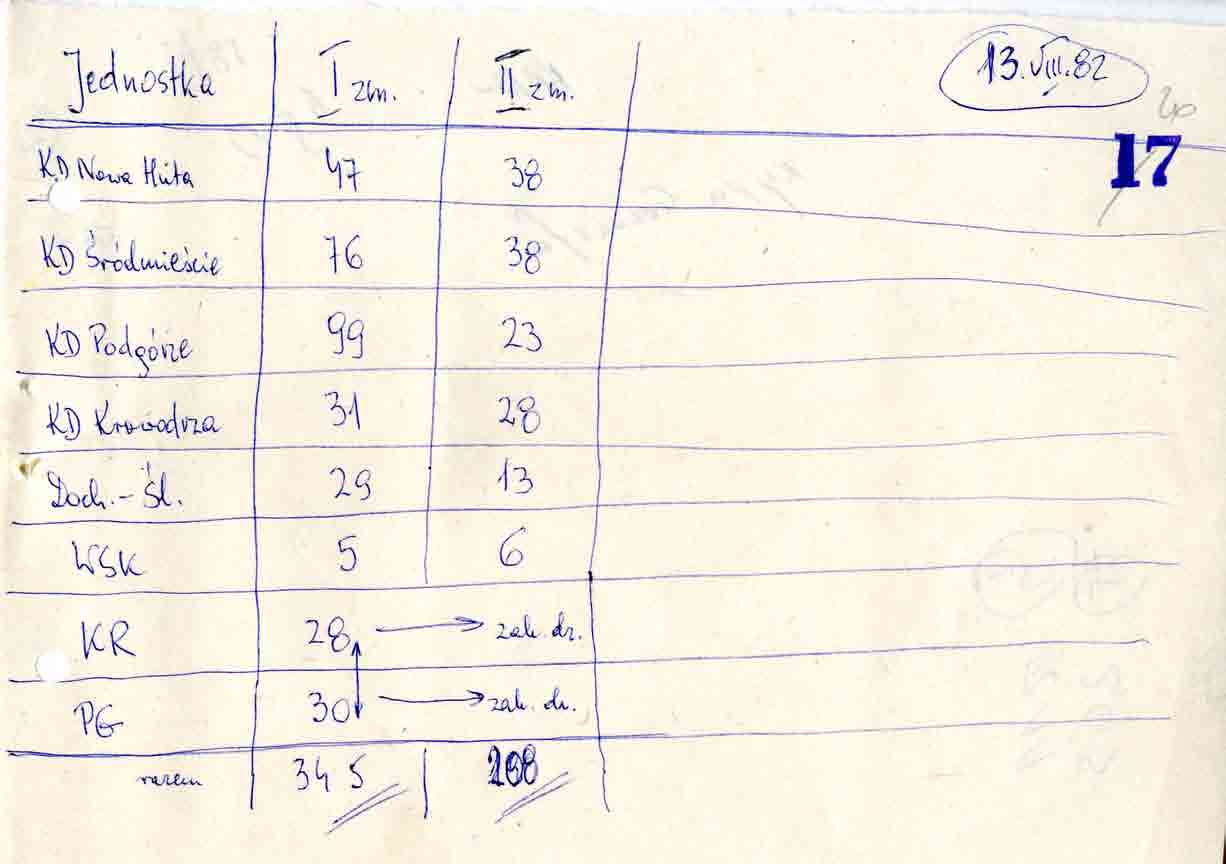 Jednostka I zm. II zm. 13.VIII.82
17
KD Nowa Huta 47 38
KD Śródmieście 76 38
KD Podgórze 99 23
KD Krowodrza 31 28
Doch.-Śl. 29 13
WSK 5 6
KR 28 → zak. dz.
PG 30 → zak. dz.
razem 345